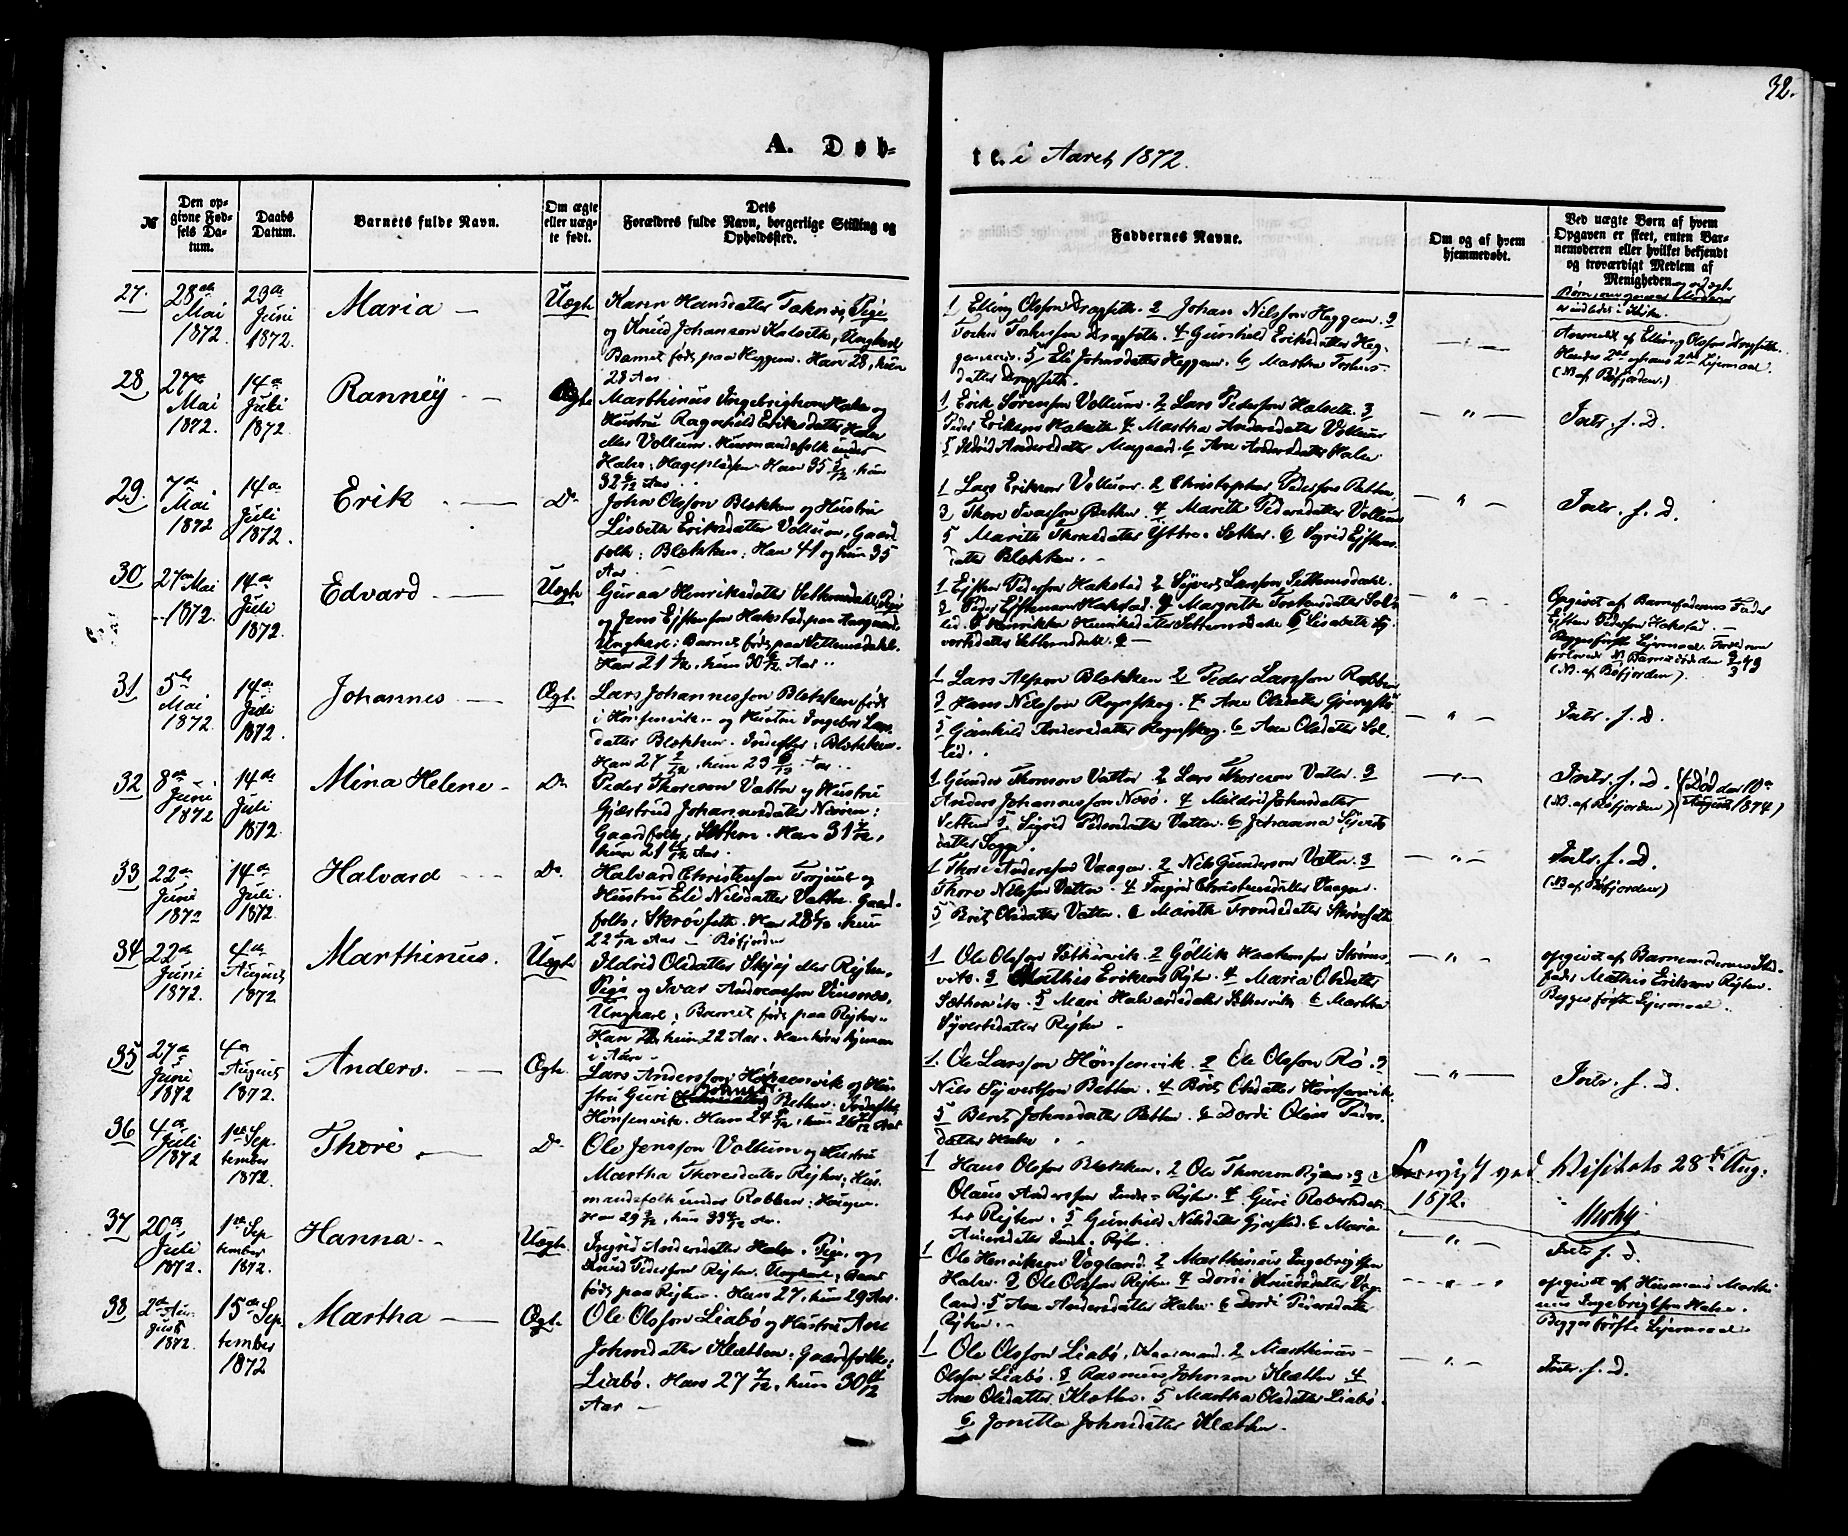 32.
A. Døb-
te. i Aaret 1872.
№
Den op-
givne Fød-
sels Da-
tum.
Daabs
Datum.
Barnets fulde Navn.
Om ægte
eller uæg-
te født.
Dets
Forældres fulde Navn, borgerlige Stilling og
Opholdssted.
Faddernes Navne.
Om og af hvem
hjemmedøbt.
Ved uægte Børn af hvem
Opgaven er skeet, enten Bar-
nemoderen eller hvilket bekjendt
og troværdigt Medlem af
Menigheden
27.
28de
Mai
1872.
23de
Juni
1872.
Maria
Uægte
Karen Hansdatter Taknes, Pige
og Knud Johanson Halseth, Ungkarl
Barnet født paa Heggem. Han 28, hun
28 Aar.
1 Elling Olsson Dragseth. 2 Johan Nilsson Heggem. 3
Dragseth. 4 Gunhild Eriksdatter Heg-
5 Eli Johnsdatter Heggem. 6 Martha
datter Dragseth.
Anmeldt af Elling Olsson Dragseth.
(N. af Bøfjorden.)
28
27de
Mai
1872.
14de
Juli
1872.
Ranneÿ
Ægte
Marthinus Ingebrigtson Halse og
Hustru Ragnhild Eriksdatter Halse
eller Vollum. Husmandsfolk under
Halse: Hagepladsen. Han 35 , hun
32 Aar
1 Erik Sørenson Vollum. 2 Lars Pederson Halseth. 3
Peder Erikson Halseth 4 Martha Andersdatter Vollum
5 Andersdatter 6 Ane Andersdatter Halse
Indr. f. D.
29.
7de
Mai
1872
14de
Juli
1872.
Erik
Do
John Olsson Blekken og Hustru
Lisbeth Eriksdatter Vollum, Gaard-
folk: Blekken: Han 41 og hun 35
Aar
1 Lars Erikson Vollum. 2 Christopher Pederson Bethen,
3 Thore Ivarson Bethen. 4 Marith Pedersdatter Vollum
5 Marith Thoresdatter Ÿttre-Sæther. 6 Sigrid Ejstens-
datter Blekken.
Indr. f. D.
30
27de Mai
1872.
14de
Juli
1872.
Edvard
Uægte
Guraa Henriksdatter Settemsdahl, Pige
og Jens Ejstenson Hakstad paa
Ungkarl: Barnet født paa Settemsdahl.
Han 21 , hun 30 Aar
1 Ejsten Pederson Hakstad 2 Sÿvert Larsson Settemsdahl.
3 Peder Ejstenson Hakstad. 4 Margrethe
5 Henrikke Henriksdatter Settemsdahl 6 Lisabeth Sÿ-
vertsdatter Settemsdahl.
Opgivet af Barnefaderens Fader
Ejsten Pederson Hakstad.
Begges første Lejermaal.
(N. af Bøfjorden)
31
5te
Mai
1872.
14de
Juli
1872.
Johannes
Ægte.
Lars Johannesson Blekken født
i Hønsenvik og Hustru Ingebor Lars-
datter Blekken. Inderster: Blekken.
Han 27 , hun 23 Aar
1 Lars Blekken 2 Peder Larsson
3 Hans Nilsson Røgnskog. 4 Ane Olsdatter
5 Gunhild Andersdatter Røgnskog. 6 Ane Olsdatter Sol-
lid.
Indr. f. D.
32
8de
Juni
1872
14de
Juli
1872
Mina Helene
Do
Peder Thoreson Vatten og Hustru
Gjærtrud Johannesdatter
Gaardfolk, Settem. Han 31 ,
hun 21 Aar.
1 Gunder Thoreson Vatten 2 Lars Thoreson Vatten. 3
Anders Johannesson Nesø. 4 Mildrid Johnsdatter
Vatten 5 Sigrid Pedersdatter Vatten. 6 Johanna Sÿverts-
datter Sogge.
Indr. f. D.
(N. af Bøfjorden)
(Død den 10de
August 1874)
33
22de
Juni
1872
14de
Juli.
1872.
Halvard
Do
Halvard Christenson Torjuul og
Hustru Eli Nilsdatter Vatten. Gaard-
folk: Skrøvseth. Han 28 , hun
22 Aar. Bøfjorden
1 Thore Anderson Vaagen. 2 Nils Gunderson Vatten. 3
Thore Nilsson Vatten. 4 Ingrid Christensdatter Vaagen.
5 Brit Olsdatter Vatten. 6 Marith Trondsdatter Skrøvseth
Indr. f. D.
(N. af Bøfjorden)
34
22de
Juni
1872.
4de
August
1872
Marthinus.
Uægte
Ildrid Olsdatter Skjej eller Rÿten,
Pige og Ivar Andreasson Vinsnes,
Ungkarl, Barnet født paa Rÿten.
Han , hun 22 Aar.
1 Ole Olsson Sæthervik. 2 Gullik Haakenson Strøms-
vik. 3 Mathis Erikson Rÿten. 4 Maria Olsdatter
Sæthervik. 5 Mari Halvardsdatter Sæthervik. 6 Martha
Sÿvertsdatter Rÿten.
opgivet af Barnemoderens Sted-
fader Mathis Erikson Rÿten.
Begges første Lejermaal.
35
27de
Juni
1872
4de
August
1872.
Anders.
Ægte.
Lars Andersson Hønsenvik og Hu-
stru Guri Bethen. Inderster,
Hønsenvik. Han 24 , hun 26 Aar
1. Ole Larsson Hønsenvik. 2 Ole Olsson Rø. 3
Nils Sÿvertson Bethen. 4 Brit Olsdatter Hønsenvik,
5 Berit Johnsdatter Bethen. 6 Dordi Olina Peders-
datter Halse
Indr. f. D.
36
4de
Juli
1872
1ste Sep-
tember
1872.
Thore
Do
Ole Jensson Vollum og Hustru
Martha Thoresdatter Rÿten, Hus-
mandsfolk under Robben: Haugen.
Han 29 , hun 33 Aar.
1 Hans Olsson Blekken. 2 Ole Thoreson 3
Olaus Andersson Indre-Rÿten. 4 Guri Robertsdat-
ter Rÿten. 5 Gunhild Nilsdatter 6 Maria
Andersdatter Indre-Rÿten.
Fremvist ved Visitats 28de Aug:
1872.
Indr. f. D.
37
20de
Juli
1872.
1ste Sep
tember
1872.
Hanna
Uægte.
Ingrid Andersdatter Halse, Pige, og
Knud Pederson Rÿten. Ungkarl; Barn
født paa Rÿten. Han 27, hun 29 Aar.
1 Ole Henrikson Vogland. 2 Marthinus Ingebrigtson
Halse. 3 Ole Olsson Rÿten 4 Dordi Knudsdatter Vog-
land. 5 Ane Andersdatter Halse. 6 Dordi Pedersdatter
Rÿten.
opgivet af Husmand Marthi-
nus Ingebrigtson Halse.
Begges første Lejermaal.
38
2de Au-
gust
1872.
15de Sep
tember
1872
Martha
Ægte.
Ole Olsson Liabø og Hustru Ane
Johnsdatter Kletten. Gaardfolk:
Liabø. Han 27 , hun 30
Aar
1 Ole Olsson Liabø, 2 Marthinus
Olsson Liabø. 3 Rasmus Johnson Kletten. 4
Ane Olsdatter Kletten. 5 Martha Olsdatter Liabø.
6 Jonetta Johnsdatter Kletten.
Indr. f. D.